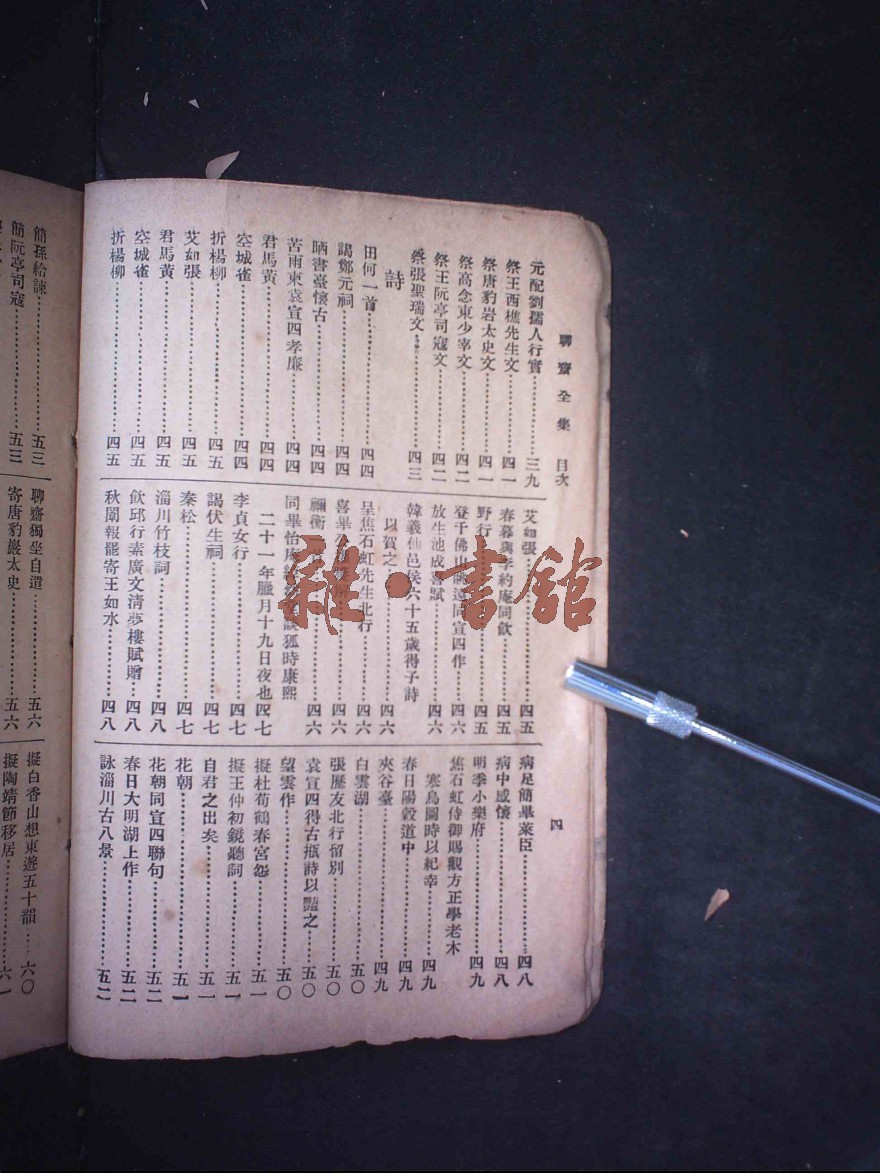 聊齋全集 目次
四
元配劉孺人行實……三九
祭王西樵先生文……四一
祭唐豹岩太史文……四一
祭高念東少宰文……四二
祭王阮亭司寇文……四二
祭張聖瑞文……四三
詩
田何一首……四四
謁鄭元祠……四四
晒書臺懷古……四四
苦雨柬袁宣四孝廉……四四
君馬黃……四四
空城雀……四四
折楊柳……四五
艾如張……四五
君馬黃……四五
空城雀……四五
折楊柳……四五
艾如張……四五
春暮與李約庵同飲……四五
野行……四五
登千佛山眺遠同宣四作……四六
放生池成喜賦……四六
韓義仙邑侯六十五歲得子詩
以賀之……四六
呈焦石虹先生北行……四六
喜畢……四六
禰衡……四六
同畢怡庵……談狐時康熙
二十一年臘月十九日夜也……四七
李貞女行……四七
謁伏生祠……四七
秦松……四七
淄川竹枝詞……四八
飲邱行素廣文清夢樓賦贈……四八
秋闈報罷寄王如水……四八
病足簡畢萊臣……四八
病中感懷……四八
明季小樂府……四九
焦石虹侍御賜觀方正學老木
寒鳥圖時以紀幸……四九
春日陽穀道中……四九
夾谷臺……四九
白雲湖……五〇
張歷友北行留別……五〇
袁宣四得古瓶詩以豔之……五〇
望雲作……五〇
擬杜荀鶴春宮怨……五一
擬王仲初鏡聽詞……五一
自君之出矣……五一
花朝……五一
花朝同宣四聯句……五二
春日大明湖上作……五二
詠淄川古八景……五二
簡孫給諫……五三
簡阮亭司寇……五三
聊齋獨坐自遣……五六
寄唐豹巖太史……五六
擬白香山想東遊五十韻……六〇
擬陶靖節移居……六一
雜·書館